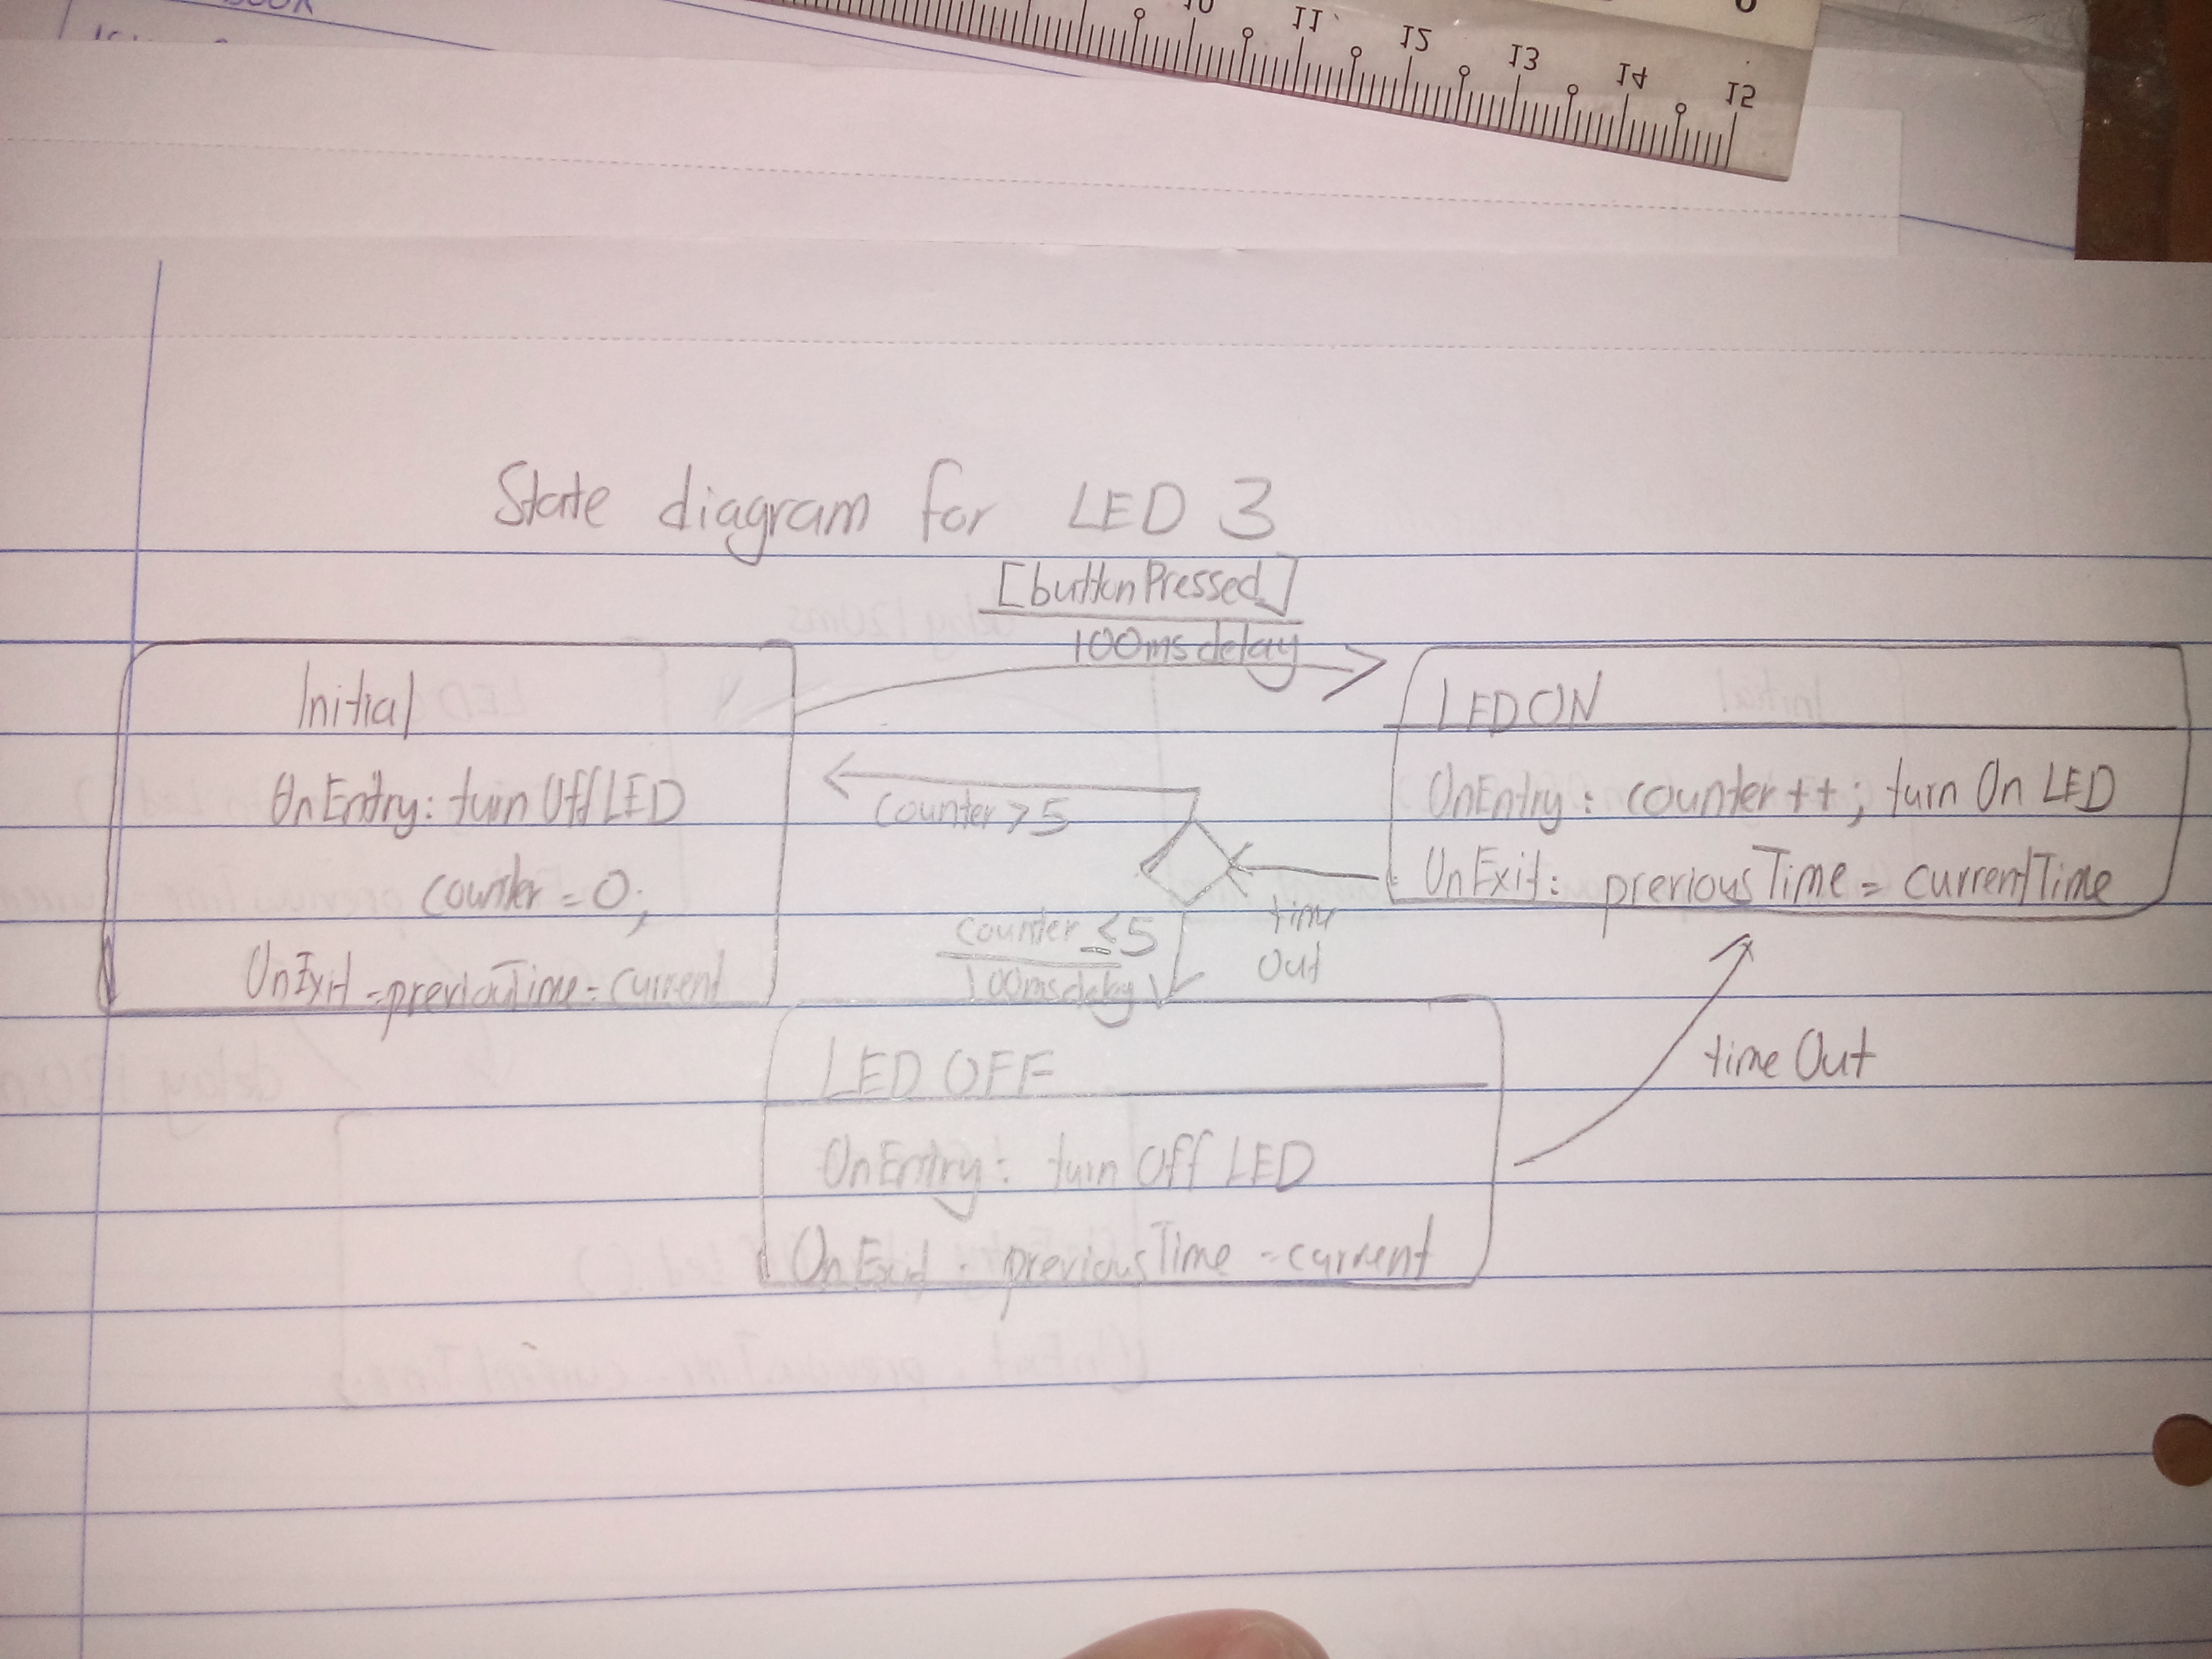 10 11 12 13 14 15
State diagram for LED 3
[buttonPressed]
100ms delay
Initial
OnEntry: turn Off LED
counter = 0;
OnExit - previouTime = current
LED ON
OnEntry: counter ++; turn On LED
OnExit: previousTime = currentTime
counter > 5
time
Out
counter ≤ 5
100ms delay
timeOut
LED OFF
OnEntry: turn Off LED
OnExit: previousTime = current